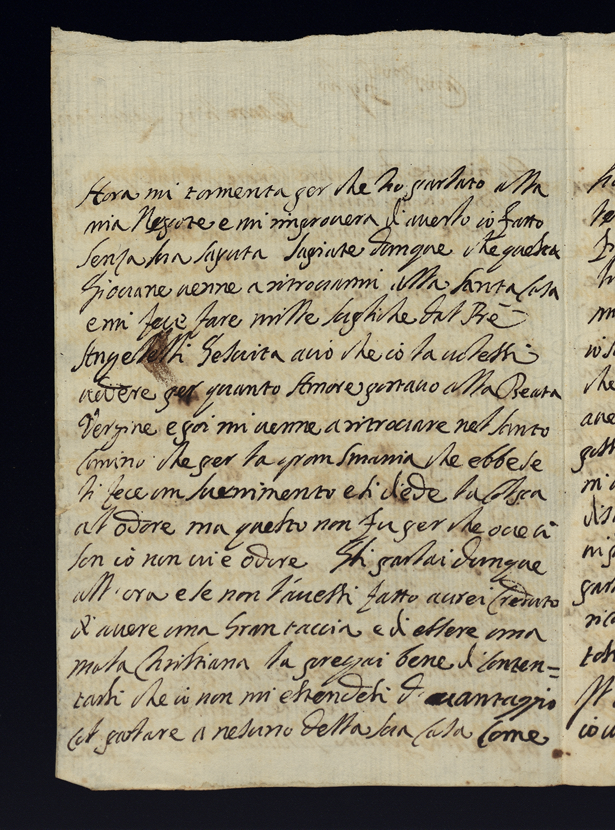 Hora mi tormenta per che ho parlato alla
mia Nepote e mi improvera di averlo io fatto
senza sua saputa Sapiate dunque che questa
Giovane venne a ritrovarmi alla Santa Casa
e mi fece fare mille supliche dal Pre
Angeletti Gesuita aciò che io la volessi
vedere per quanto Amore portavo alla Beata
Vergine e poi mi venne a ritrovare nel Santo
Camino che per la gran Smania che ebbe se
li fece un svenimento e si diede la colpa
al odore ma questo non fu per che ove ci
son io non vi è odore Gli parlai dunque
all'ora e se non l'avessi fatto averei creduto
di avere una Gran taccia e di essere una
mala Christiana la pregai bene di conten=
tarsi che io non mi estendessi d'avantaggio
col parlare a nesuno della sua Casa Come